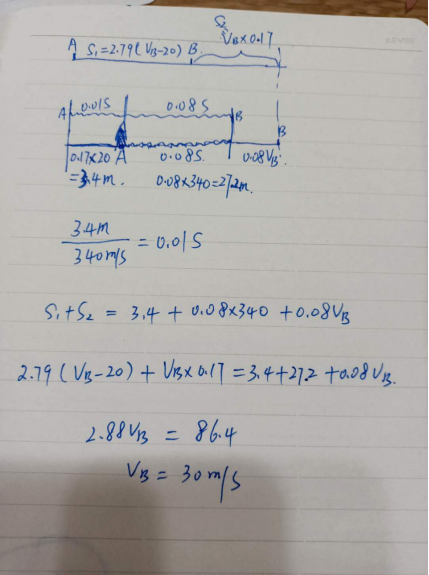 S₂
A S₁=2.79(VB-20) B VB×0.17
A 0.01S 0.08S B
0.17×20 A 0.08S. 0.08VB. B
=3.4m. 0.08×340=27.2m.
3.4m
340m/s
= 0.01S
S₁+S₂ = 3.4 + 0.08×340 +0.08VB
2.79(VB-20)+VB×0.17=3.4+27.2+0.08VB.
2.88VB = 86.4
VB = 30m/S